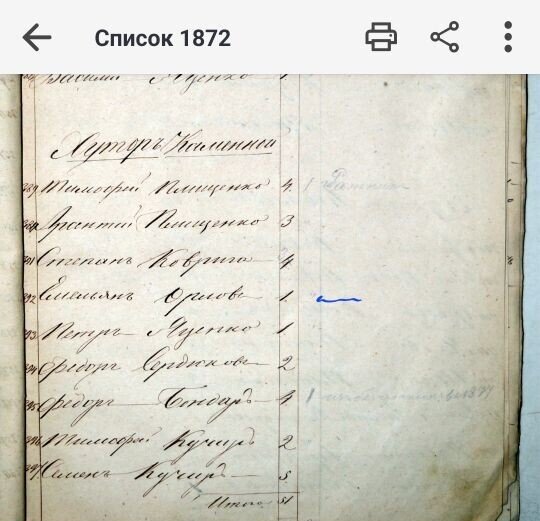 Список 1872
Василий Яценко 1
Хуторъ Каменной
389 Тимофей Плищенко 4 1
390 Плищенко 3
391 Степанъ Коврига 4
392 Емельянъ Орловъ 1
393 Петръ Яценко 1
394 Федоръ Сердюковъ 2
395 Федоръ Бондарь 4 1
396 Тимофей Кучиръ 2
397 Семенъ Кучиръ 5
Итого 51